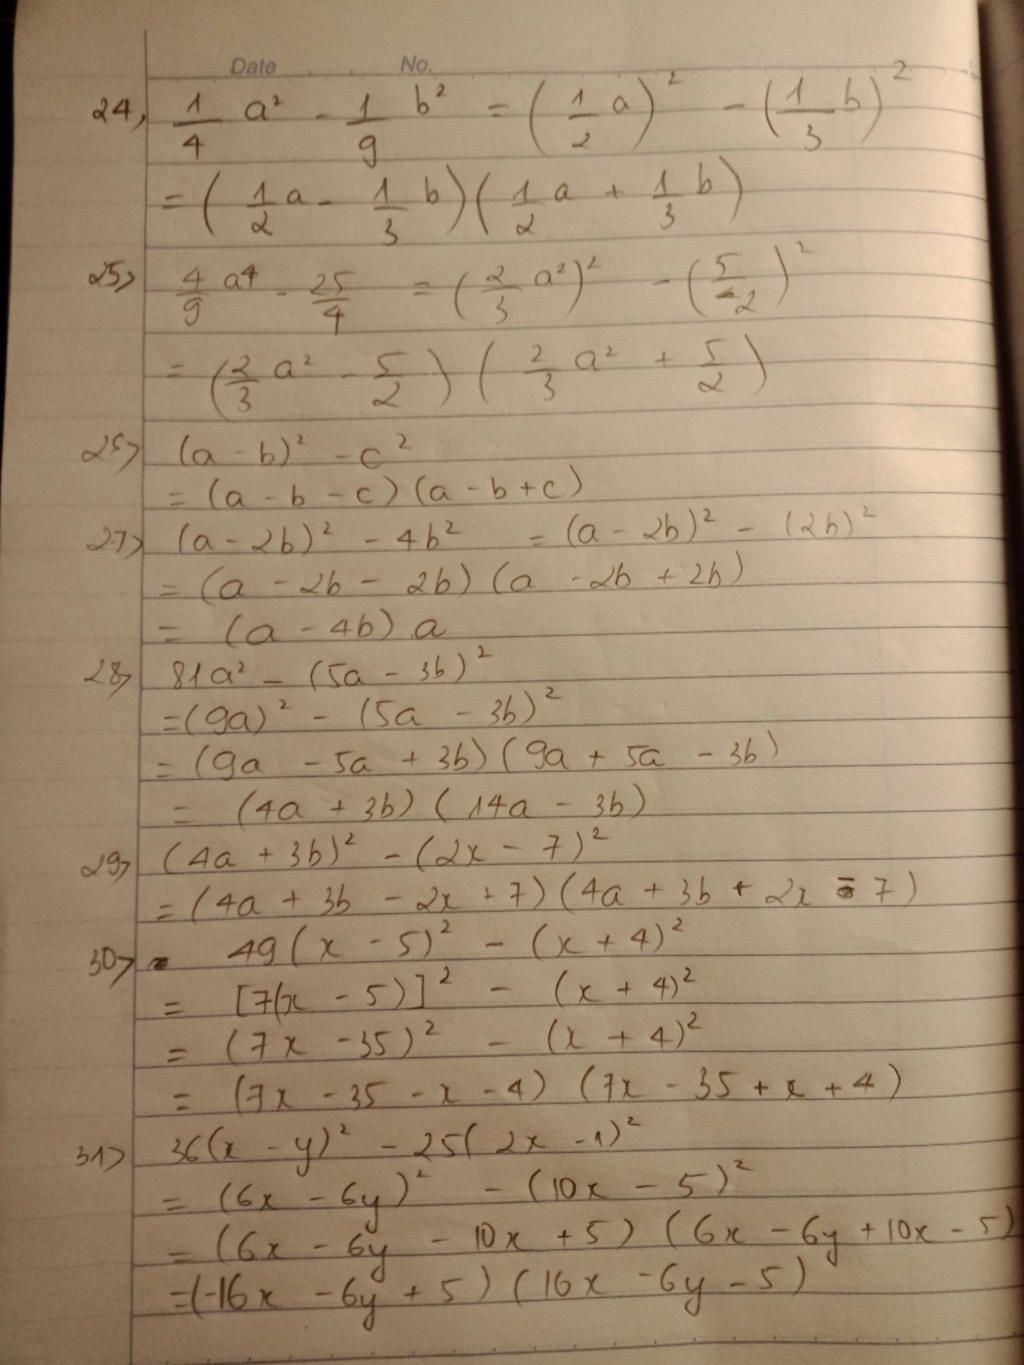 Date No.
24, 1/4 a² - 1/9 b² = (1/2 a)² - (1/3 b)²
= (1/2 a - 1/3 b)(1/2 a + 1/3 b)
25, 4/9 a⁴ - 25/4 = (2/3 a²)² - (5/2)²
= (2/3 a² - 5/2) (2/3 a² + 5/2)
(a - b)² - c²
= (a - b - c) (a - b + c)
27, (a - 2b)² - 4b² = (a - 2b)² - (2b)²
= (a - 2b - 2b) (a - 2b + 2b)
= (a - 4b) a
28, 81a² - (5a - 3b)²
= (9a)² - (5a - 3b)²
= (9a - 5a + 3b) (9a + 5a - 3b)
= (4a + 3b) (14a - 3b)
29, (4a + 3b)² - (2x - 7)²
= (4a + 3b - 2x + 7) (4a + 3b + 2x - 7)
30, 49(x - 5)² - (x + 4)²
= [7(x - 5)]² - (x + 4)²
= (7x - 35)² - (x + 4)²
= (7x - 35 - x - 4) (7x - 35 + x + 4)
31, 36(x - y)² - 25(2x - 1)²
= (6x - 6y)² - (10x - 5)²
= (6x - 6y - 10x + 5) (6x - 6y + 10x - 5)
= (-16x - 6y + 5) (16x - 6y - 5)